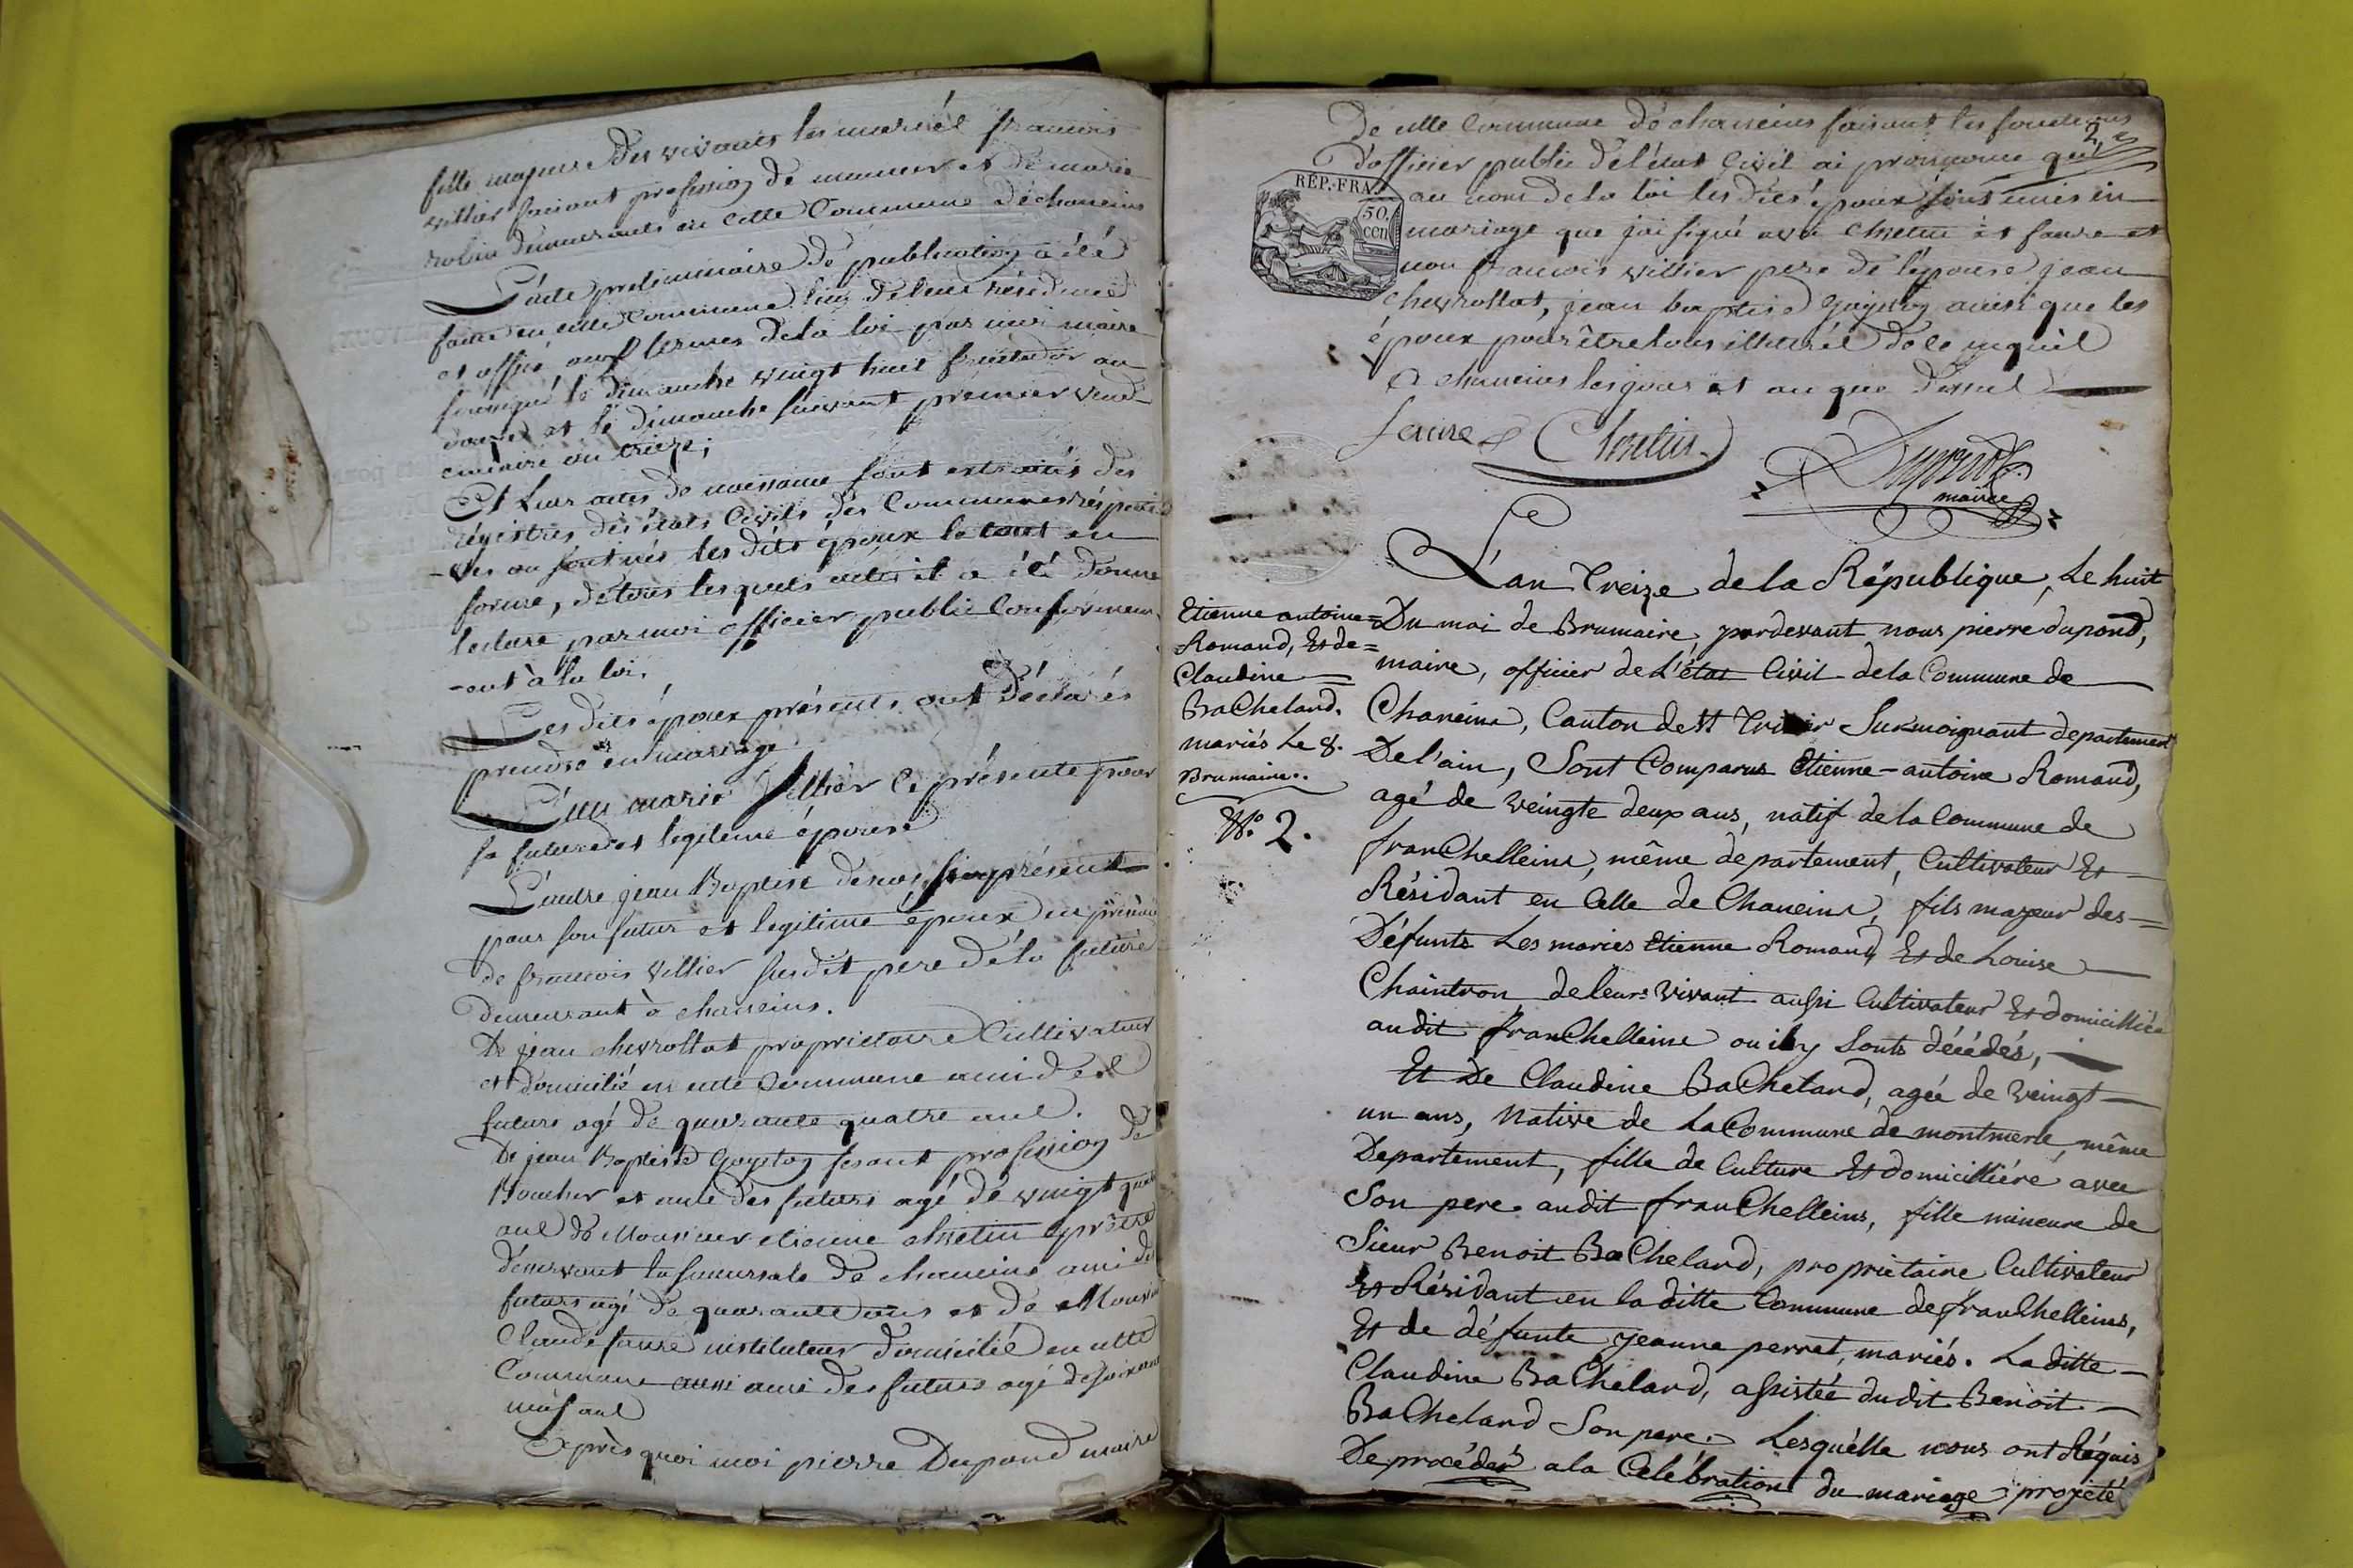 fille majeure des vivants les mariés francois
villier faisant profession de meunier et de marie
robin demeurants en cette Commune de chaneins
L'acte preliminaire de publication a été
faitte en cette Commune lieu de leur résidence
et affiché aux termes de la loi par moi maire
soussigné le dimanche vingt huit fructidor an
douze et le dimanche suivant premier vend-
emiaire an treize;
Et leurs actes de naissance sont extraits des
régistres des états Civils des Communes réspecti-
-ves ou sont nés les dits époux le tout en
forme, de tous lesquels actes il a été donné
lecture par moi officier public Conformem-
-ent à la loi.
Les dits époux présents ont déclarés
prendre en mariage
L'un marie Villier Ci présente pour
sa future et legitime épouse
L'autre jean Baptiste présent
pour son futur et legitime époux en présence
de francois Villier susdit pere de la future
demeurant à chaneins.
De jean chevrollat proprietaire Cultivateur
et domicilié en cette Commune ami des
futurs agé de quarante quatre ans.
De jean Baptiste Goyston fesant profession de
Boucher et des futurs agé de vingt quatre
ans de Monsieur etienne chretin prêtre
desservant la succursale de chaneins ami des
futurs agé de quarante ans et de Monsieur
Claude faure instituteur domicilié en cette
Commune aussi ami des futurs agé de
neuf ans
Après quoi moi pierre Dupond maire
De cette Commune de chaneins faisant les fonctions
2
d'officier public de l'état Civil ai prononcé qu'
RÉP.-FRA.
50. cen
au nom de la loi les dits époux sont unis en
mariage que j'ai signé avec chretin et faure et
non francois villier pere de l'épouse jean
chevrollat, jean baptiste Goyston ainsi que les
époux pour être tous illiterés de ce enquis
à chaneins les jour et an que dessus
faure Chretin
Dupond
maire
L'an Treize de la République, Le huit
Du moi de Brumaire, pardevant nous pierre dupond,
maire, officier de L'état Civil de la Commune de
Chaneins, Canton de St Trivier Sur moignant departement
De l'ain, Sont Comparus Etienne-antoine Romand,
agé de veingte deux ans, natif de la Commune de
franChelleins, même departement, Cultivateur Et
Résidant en Celle de Chaneins, fils majeur des
Défunts Les mariés Etienne Romand, Et de Louise
Chaintron de leurs vivant aussi Cultivateur Et domicilliés
audit franChelleins ou ils y Sonts décédés,
Et De Claudine BaChelard, ageé de veingt
un ans, Native de La Commune de montmerle, même
Departement, fille de Culture Et domicilliéré avec
Son pere audit franChelleins, fille mineure de
Sieur Benoit BaChelard, propriétaire Cultivateur
Et Résidant en la ditte Commune de franChelleins,
Et de défunte jeanne perret, mariés. La ditte
Claudine BaChelard, assistée dudit Benoit
BaChelard Son pere. Lesquélle nous ont Réquis
De procéder a la Celébration du mariage projeté
Etienne antoine
Romand, Et de
Claudine
BaChelard.
mariés Le 8.
Brumaire.
N.º 2.